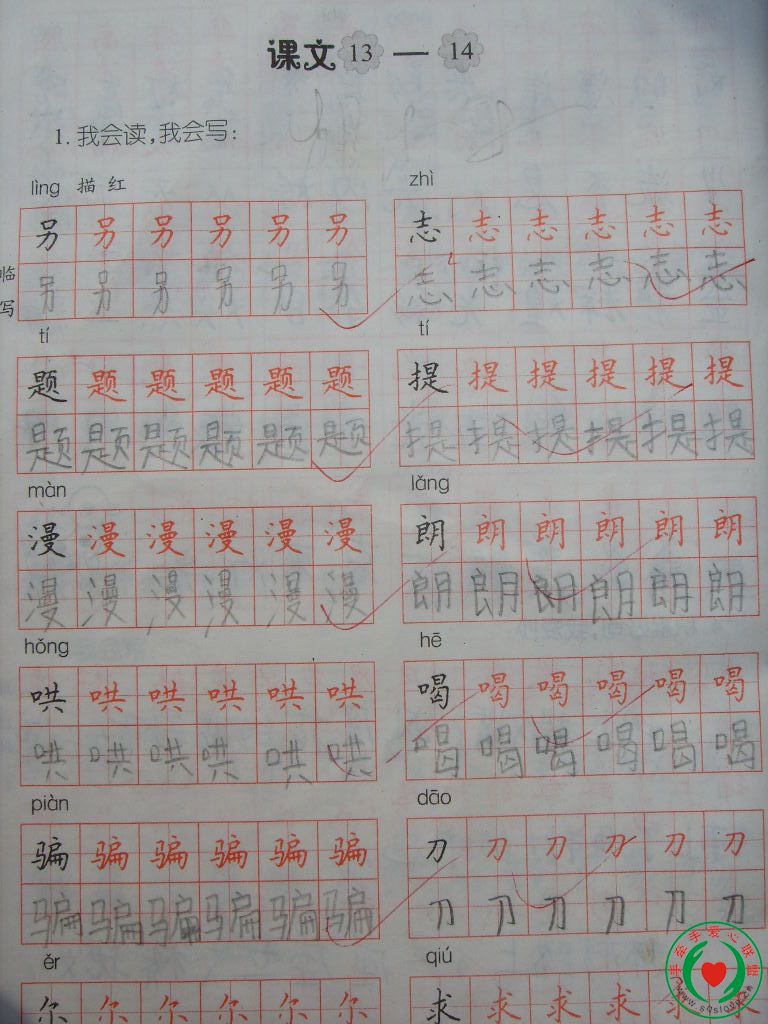 课文 13 — 14
1. 我会读,我会写:
lìng 描 红 zhì
另 另 另 另 另 另 志 志 志 志 志 志
临写 另 另 另 另 另 另 志 志 志 志 志 志
tí tí
题 题 题 题 题 题 提 提 提 提 提 提
题 题 题 题 题 题 提 提 提 提 提 提
màn lǎng
漫 漫 漫 漫 漫 漫 朗 朗 朗 朗 朗 朗
漫 漫 漫 漫 漫 漫 朗 朗 朗 朗 朗 朗
hǒng hē
哄 哄 哄 哄 哄 哄 喝 喝 喝 喝 喝 喝
哄 哄 哄 哄 哄 哄 喝 喝 喝 喝 喝 喝
piàn dāo
骗 骗 骗 骗 骗 骗 刀 刀 刀 刀 刀 刀
骗 骗 骗 骗 骗 骗 刀 刀 刀 刀 刀 刀
ěr qiú
尔 尔 尔 尔 尔 尔 求 求 求 求 求 求
手牵手爱心联盟